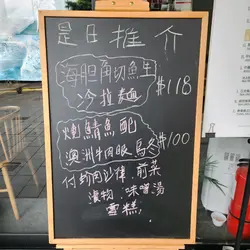 是日推介
海胆角切魚生
沙拉麵 $118
燒鯖魚配
澳洲牛肉眼烏冬 $100
付蚧肉沙律 前菜
漬物 味噌湯
雪糕